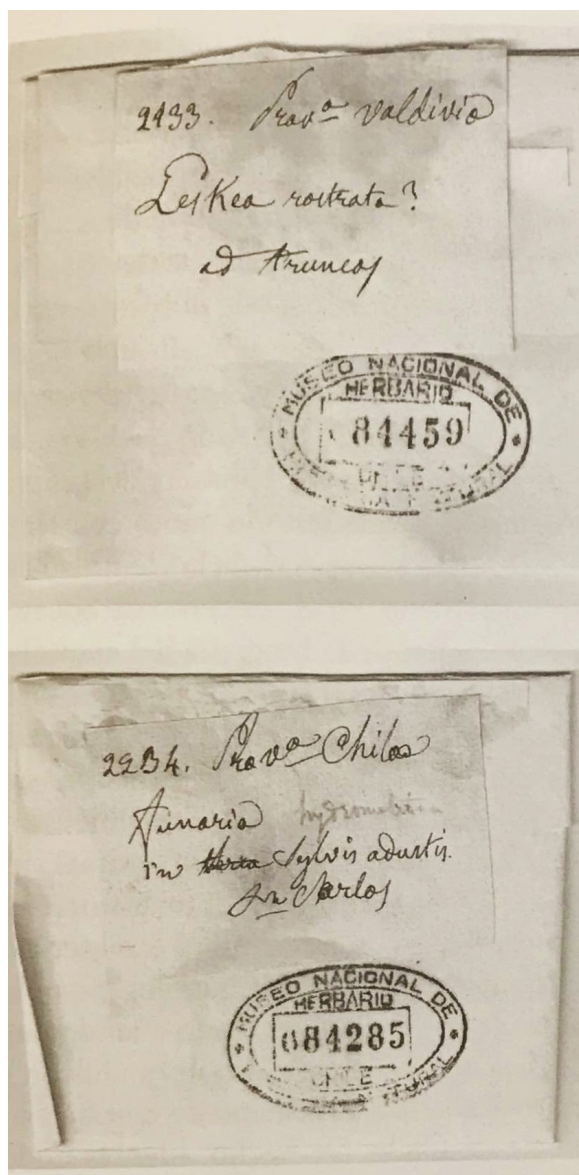 2433. Prov.ª Valdivia
Leskea rostrata?
ad truncos
MUSEO NACIONAL DE
HERBARIO
84459
2234. Prov.ª Chiloe
Funaria hydrometrica
in sylvis adustis.
Sn Carlos
MUSEO NACIONAL DE
HERBARIO
084285
CHILE